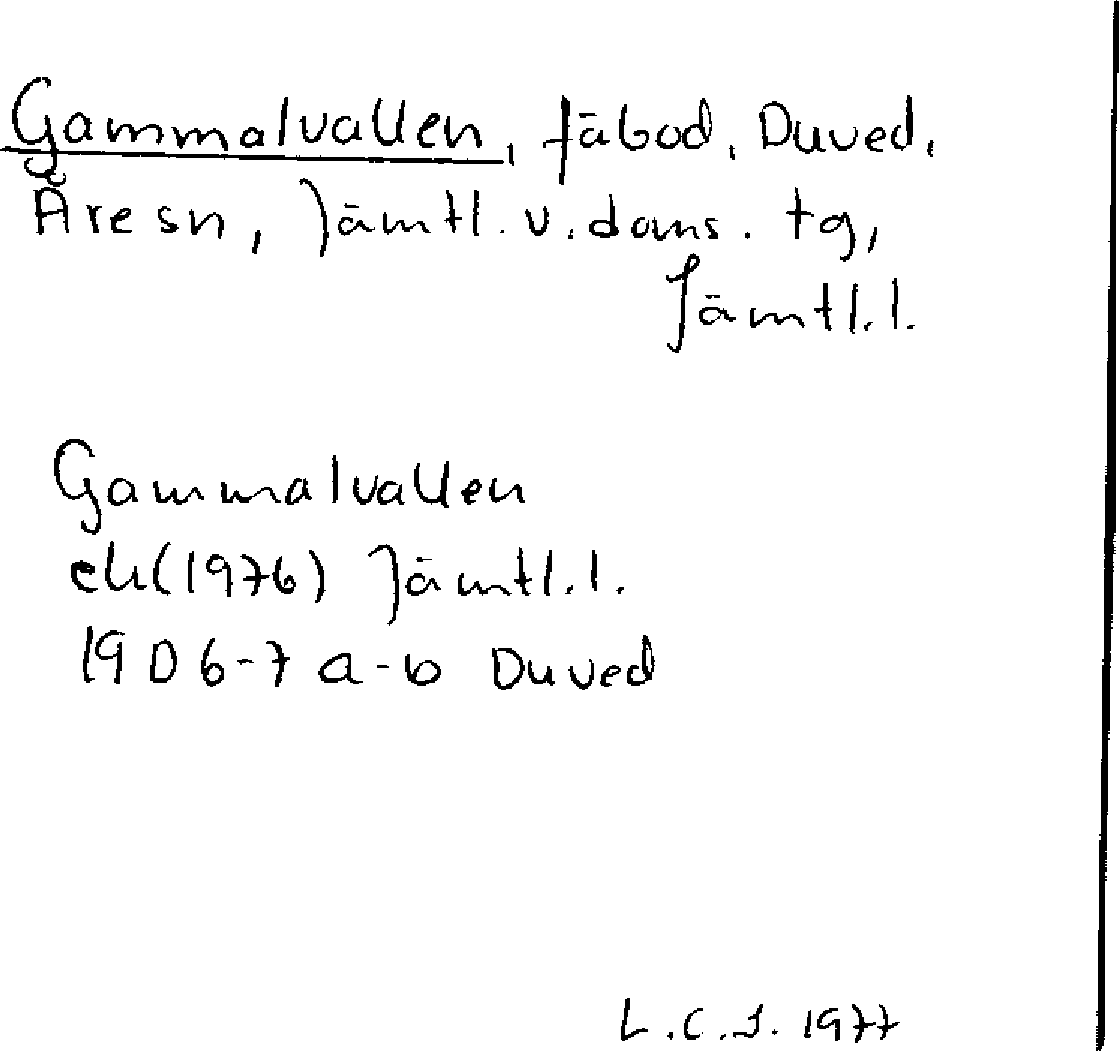 Gammalvallen, fäbod, Duved,
Åre sn, Jämtl. v. doms. tg,
Jämtl. l.
Gammalvallen
ek(1976) Jämtl. l.
19 D 6-7 a-b Duved
L.C.J. 1977